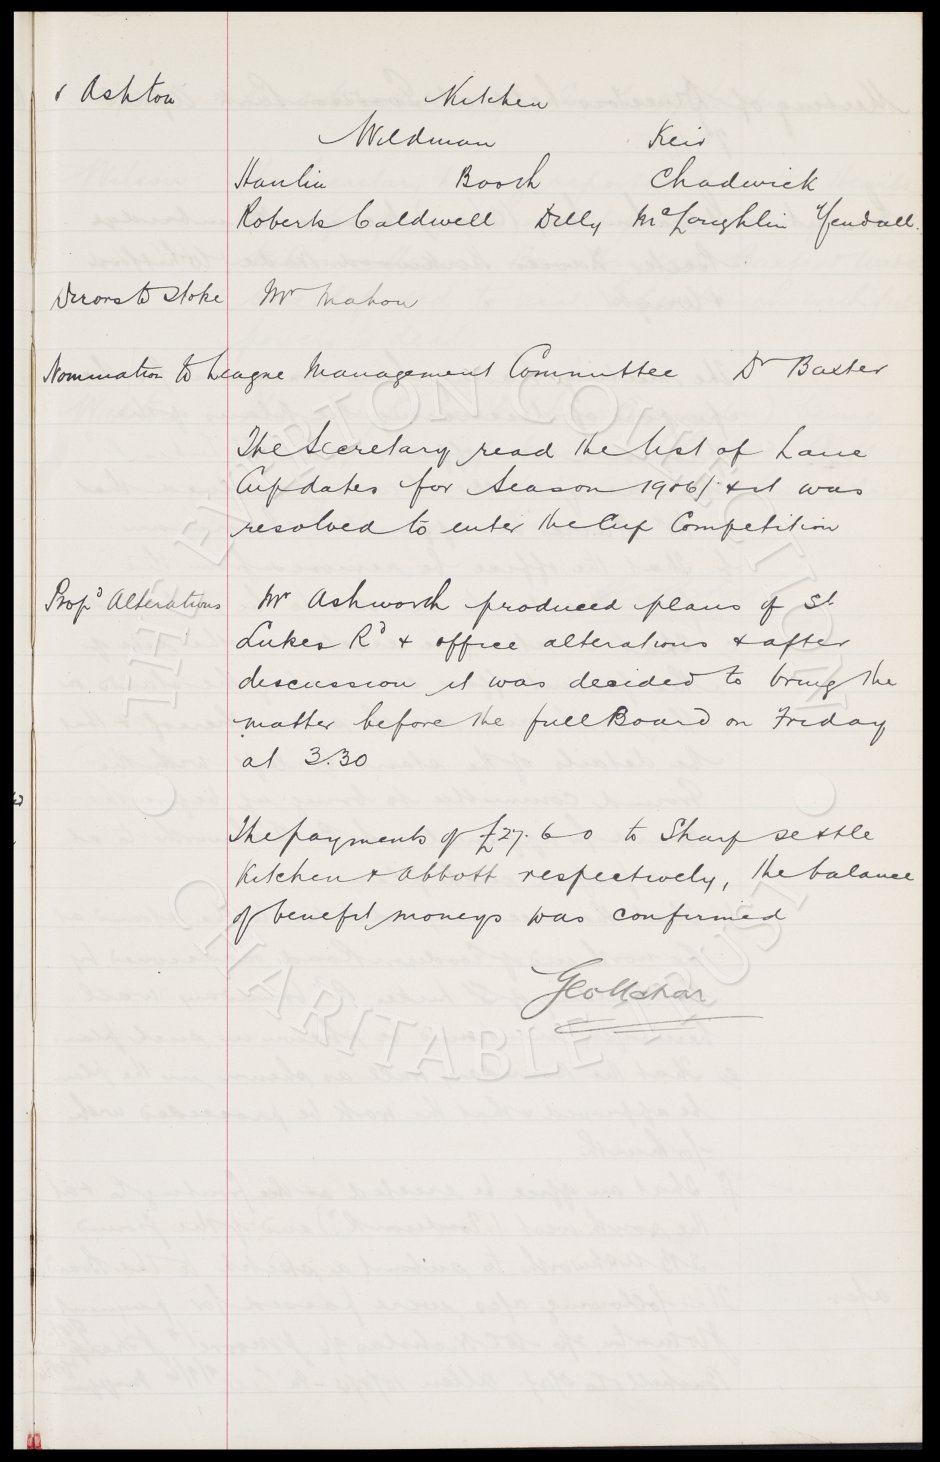 v Ashton Kitchen
Wildman Keir
Hanlin Booth Chadwick
Roberts Caldwell Dilly McLoughlin Yendall.
Direcrs to Stoke Mr Mahon
Nomination to League Management Committee Dr Baxter
The Secretary read the list of Lanc
Cup dates for Season 1906/7 & it was
resolved to enter the Cup Competition
Propd Alterations Mr Ashworth produced plans of St.
Lukes Rd & office alterations & after
discussion it was decided to bring the
matter before the full Board on Friday
at 3.30
The payments of £27. 6 0 to Sharp Settle
Kitchen & Abbott respectively, the balance
of benefit moneys was confirmed
Geo Mahon
THE EVERTON COLLECTION
CHARITABLE TRUST